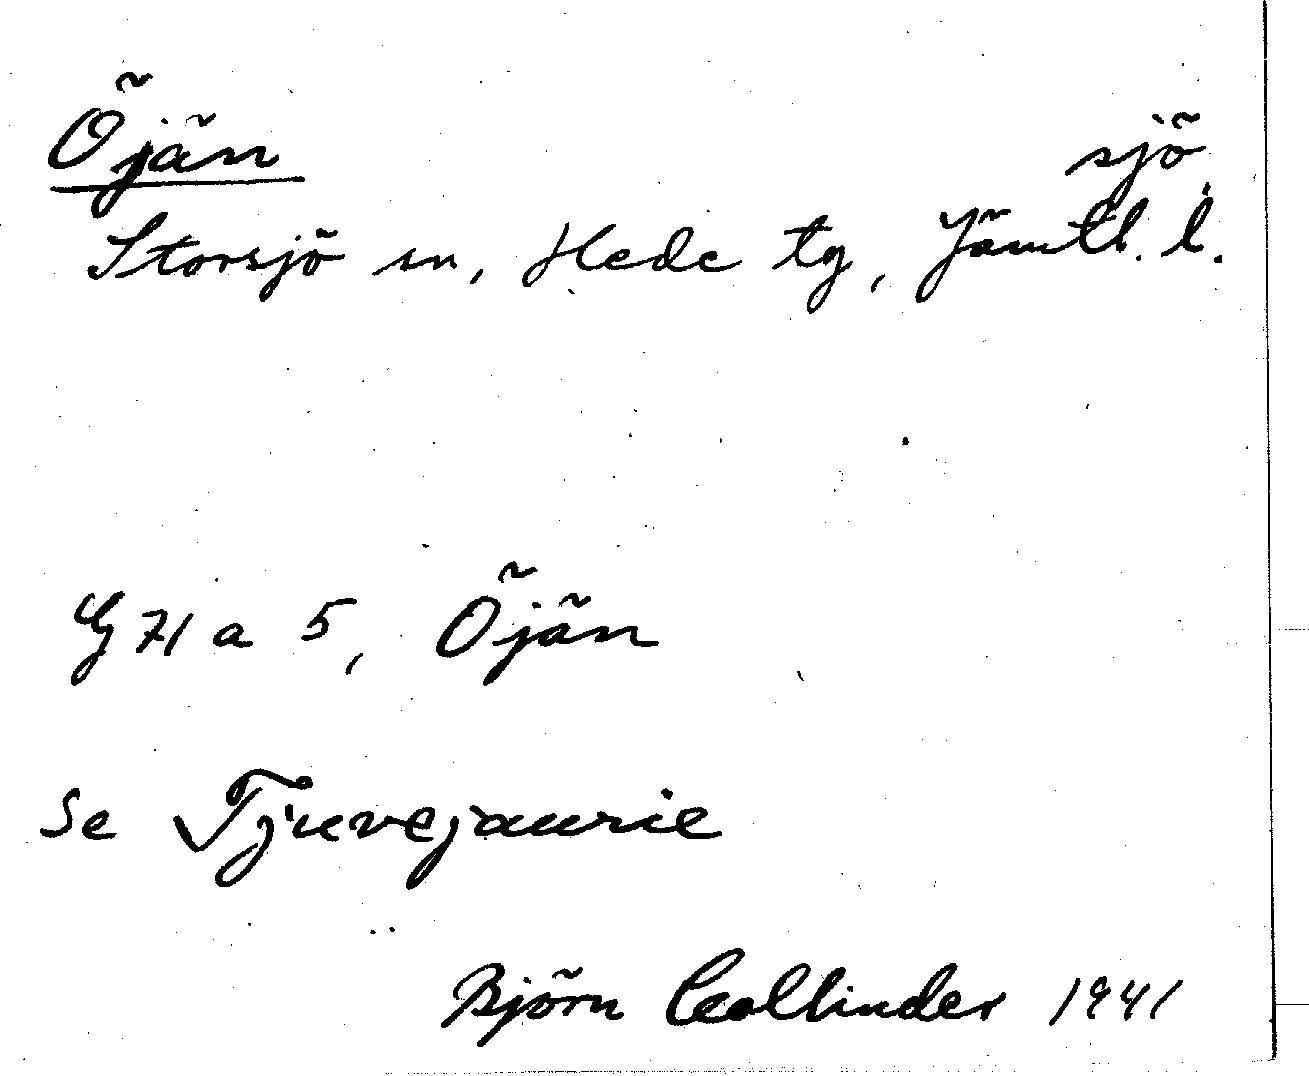 Öjän sjö
Storsjö sn, Hede tg, Jämtl. l.
G 71 a 5, Öjän
Se Tjuvejaurie
Björn Collinder 1941